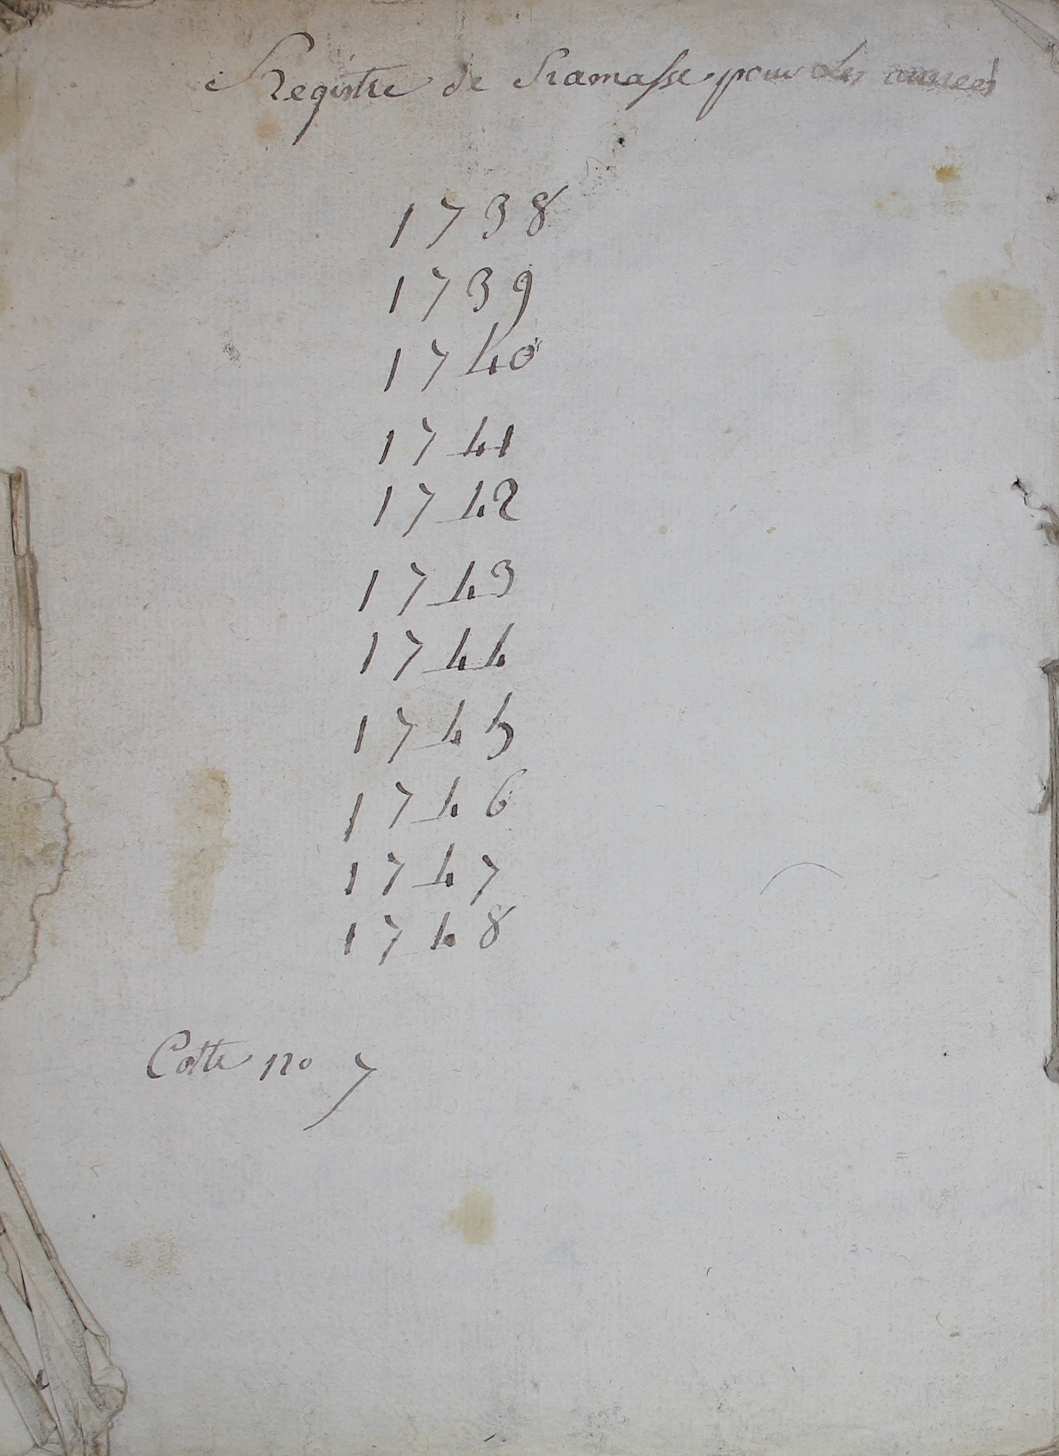 Registre de Ramasse pour Les années
1738
1739
1740
1741
1742
1743
1744
1745
1746
1747
1748
Cotte no 7